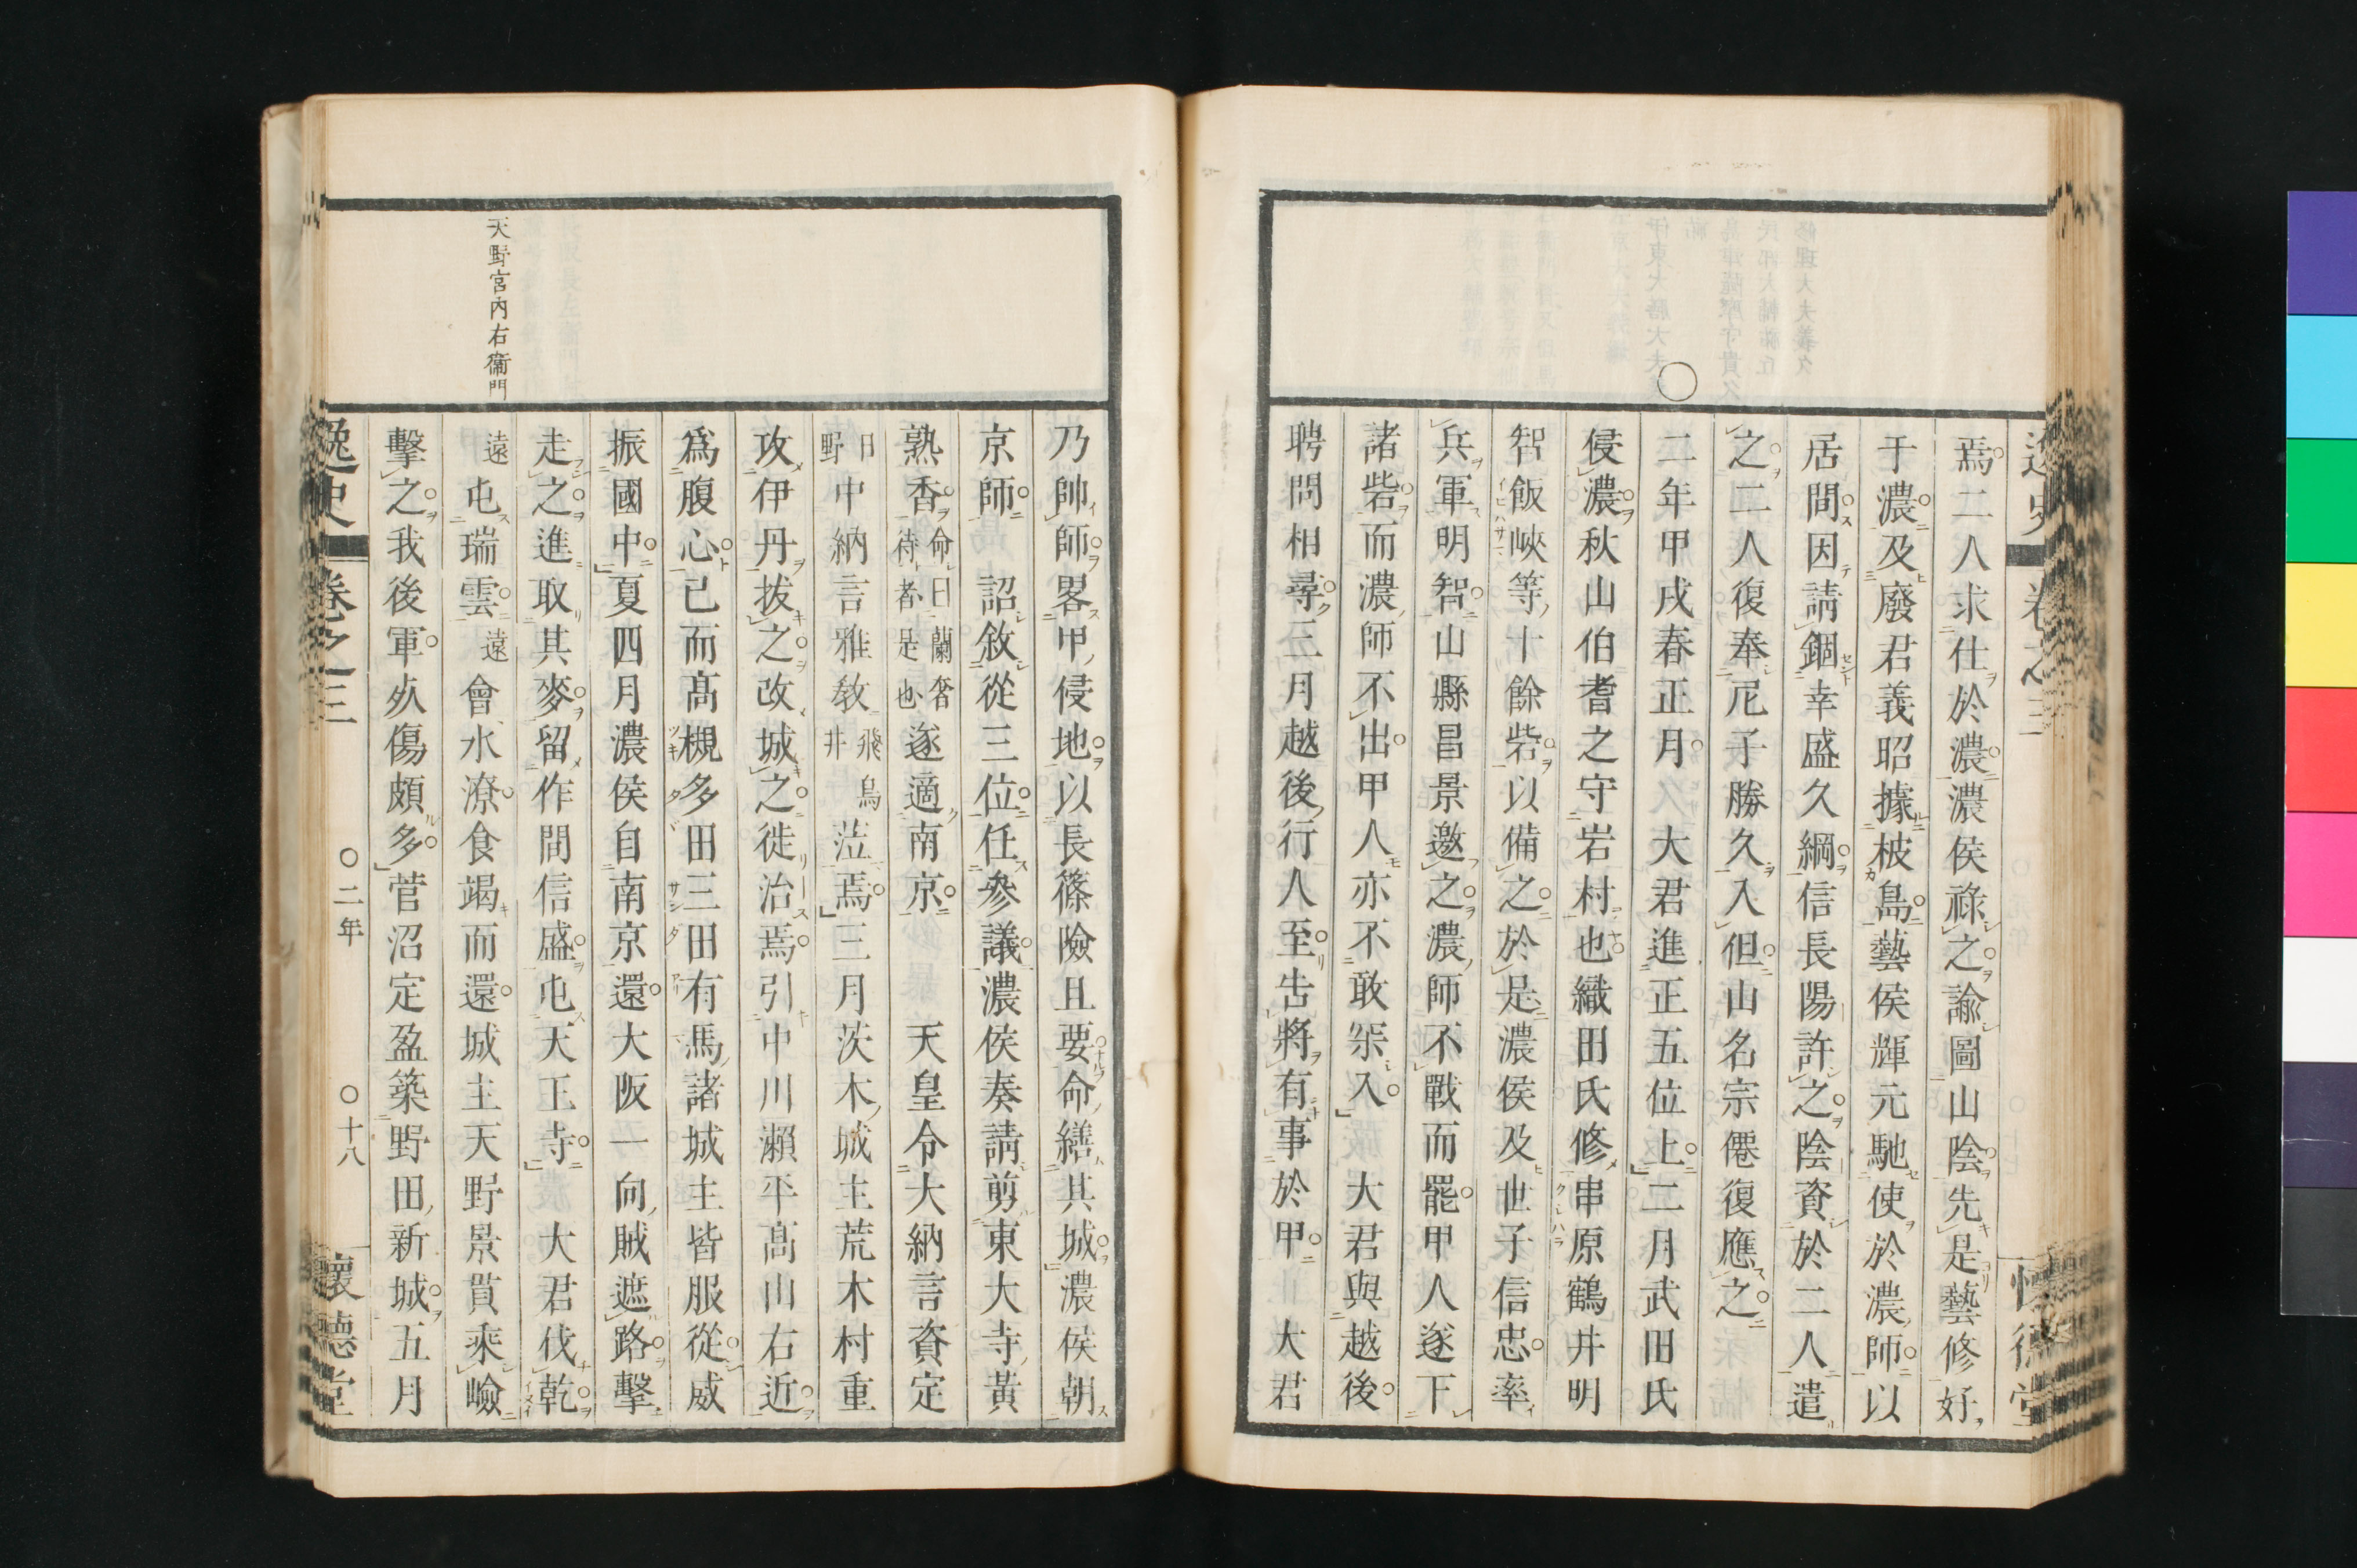 逸史 卷之三 懷德堂
焉二人求仕於濃濃侯祿之諭圖山陰先是藝修好
于濃及廢君義昭據柀島藝侯輝元馳使於濃師以
居間因請錮幸盛久綱信長陽許之陰資於二人遣
之二人復奉尼子勝久入但山名宗僊復應之
二年甲戌春正月 大君進正五位上二月武田氏
侵濃秋山伯耆之守岩村也織田氏修串原鶴井明
智飯峽等十餘砦以備之於是濃侯及世子信忠率
兵軍明智山縣昌景邀之濃師不戰而罷甲人遂下
諸砦而濃師不出甲人亦不敢罙入 大君與越後
聘問相尋三月越後行人至告將有事於甲 大君
乃帥師畧甲侵地以長篠險且要命繕其城濃侯朝
京師 詔敘從三位任參議濃侯奏請剪東大寺黃
熟香命曰蘭奢待者是也遂適南京 天皇令大納言資定
日野中納言雅教飛鳥井蒞焉三月茨木城主荒木村重
攻伊丹拔之改城之徙治焉引中川瀨平高山右近
爲腹心已而高槻多田三田有馬諸城主皆服從威
振國中夏四月濃侯自南京還大阪一向賊遮路擊
走之進取其麥留作間信盛屯天王寺 大君伐乾
遠屯瑞雲遠會水潦食竭而還城主天野景貫乘嶮
擊之我後軍死傷頗多菅沼定盈築野田新城五月
天野宮內右衞門
逸史 卷之三 〇二年 〇十八 懷德堂